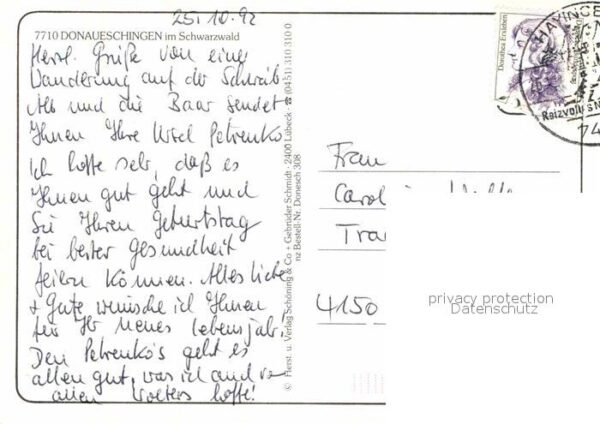 25.10.92
7710 DONAUESCHINGEN im Schwarzwald
Herzl. Grüße von einer
Wanderung auf der Schwäb.
Alb und die Baar sendet
Ihnen Ihre Ursel Petrenko
Ich hoffe sehr, daß es
Ihnen gut geht und
Sie Ihren Geburtstag
bei bester Gesundheit
feiern können. Alles Liebe
+ Gute wünsche ich Ihnen
für Ihr neues Lebensjahr!
Den Petrenko's geht es
allen gut, was ich auch von
allen Wolters hoffe!
© Herst. u. Verlag Schöning & Co + Gebrüder Schmidt · 2400 Lübeck · ☎ (0451) 310 310 0
nz Bestell-Nr. Donesch 308
Dorothea Erxleben
HAYINGE
Reizvolles N
74
Frau
Tra
4150
privacy protection
Datenschutz